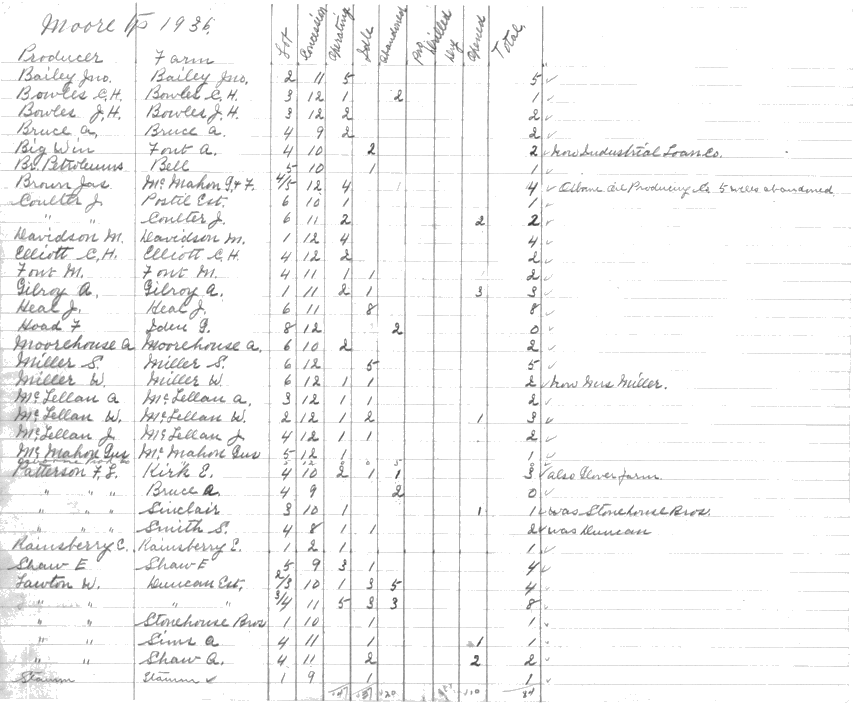 Moore Tp 1936.
Producer Farm Lot Concession Operating Idle Abandoned Drilled Dry Opened Total
Bailey Jno. Bailey Jno. 2 11 5 5 ✓
Bowles C.H. Bowles C.H. 3 12 1 2 1 ✓
Bowles J.H. Bowles J.H. 3 12 2 2 ✓
Bruce A. Bruce A. 4 9 2 2 ✓
Big Win Font A. 4 10 2 2 ✓ Now Industrial Loan Co.
Br. Petroleums Bell 5 10 1 1 ✓
Brown Jas McMahon G.&F. 4/5 12 4 4 ✓ Oil Producing Co 5 wells abandoned
Coulter J. Postil Est. 6 10 1 1 ✓
" " Coulter J. 6 11 2 2 2 ✓
Davidson M. Davidson M. 1 12 4 4 ✓
Elliott C.H. Elliott C.H. 4 12 2 2 ✓
Font M. Font M. 4 11 1 1 2 ✓
Gilroy A. Gilroy A. 1 11 2 1 3 3 ✓
Heal J. Heal J. 6 11 8 8 ✓
Hoad F Iden G. 8 12 2 0 ✓
Moorehouse A Moorehouse A. 6 10 2 2 ✓
Miller S. Miller S. 6 12 5 5 ✓
Miller W. Miller W. 6 12 1 1 2 ✓ Now Mrs Miller.
McLellan A McLellan A. 3 12 1 1 2 ✓
McLellan W. McLellan W. 2 12 1 2 1 3 ✓
McLellan J. McLellan J. 4 12 1 1 2 ✓
McMahon Gus McMahon Gus 5 12 1 1 ✓
Patterson F.L. Kirk E. 4 10 2 1 1 3 ✓ also Clover farm
" " " Bruce A. 4 9 2 0 ✓
" " " Sinclair 3 10 1 1 1 ✓ was Stonehouse Bros.
" " " Smith S. 4 8 1 1 2 ✓ was Duncan
Rainsberry C. Rainsberry C. 1 2 1 1 ✓
Shaw E Shaw E 5 9 3 1 4 ✓
Lawton W. Duncan Est. 2/3 10 1 3 5 4 ✓
" " " " 3/4 11 5 3 3 8 ✓
" " Stonehouse Bros 1 10 1 1 ✓
" " Sims A 4 11 1 1 1 ✓
" " Shaw A. 4 11 2 2 2 ✓
Stamm Stamm ✓ 1 9 1 1 ✓
47 37 20 10 84